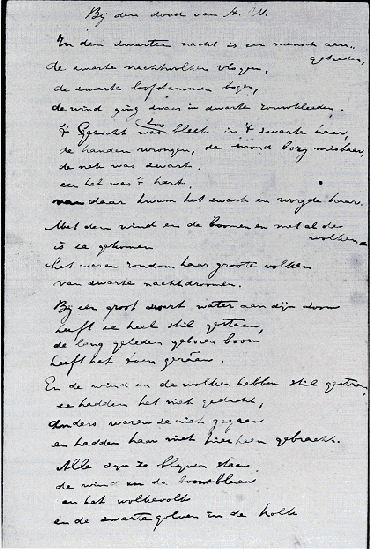 Bij den dood van A. W.
In den zwarten nacht is een mensch aan-
getreden,
de zwarte nachtwolken vlogen,
de zwarte loofdaken bogen,
de wind ging zwaar in zwarte rouwkleeden.
't Gezicht was bleek in 't zwarte haar,
de handen wrongen, de mond boog
de nek was zwart.
en het was 't hart.
van daar kwam het zwart en haar.
Met den wind en de boomen en met al de
wolken
is ze gekomen
het waren rondom haar groote volken
van zwarte nachtdroomen.
Bij een groot zwart water aan zijn zoom
heeft ze heel stil gestaan,
de lang geleden geboren boom
heeft het zien
En de wind en de wolken hebben stil gestaan,
ze hadden het niet gedacht,
anders waren ze niet gegaan
en hadden haar niet hierheen gebracht.
Alle zijn ze blijven staan
de wind en de
en het wolkevolk
en de zwarte golven in de kolk